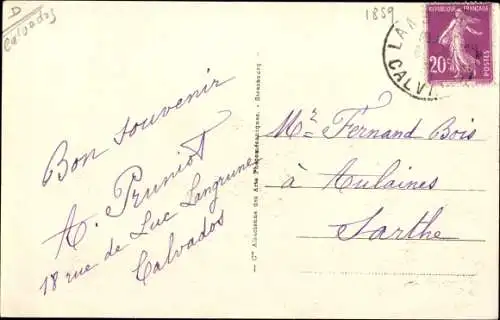 D
Calvados
1859
REPUBLIQUE FRANÇAISE
20c
POSTES
CALV
Bon souvenir
A. Pruniot
18 rue de Luc Langrune
Calvados
Cie Alsacienne des Arts Photomécaniques, - Strasbourg
Mr Fernand Bois
à Aulaines
Sarthe